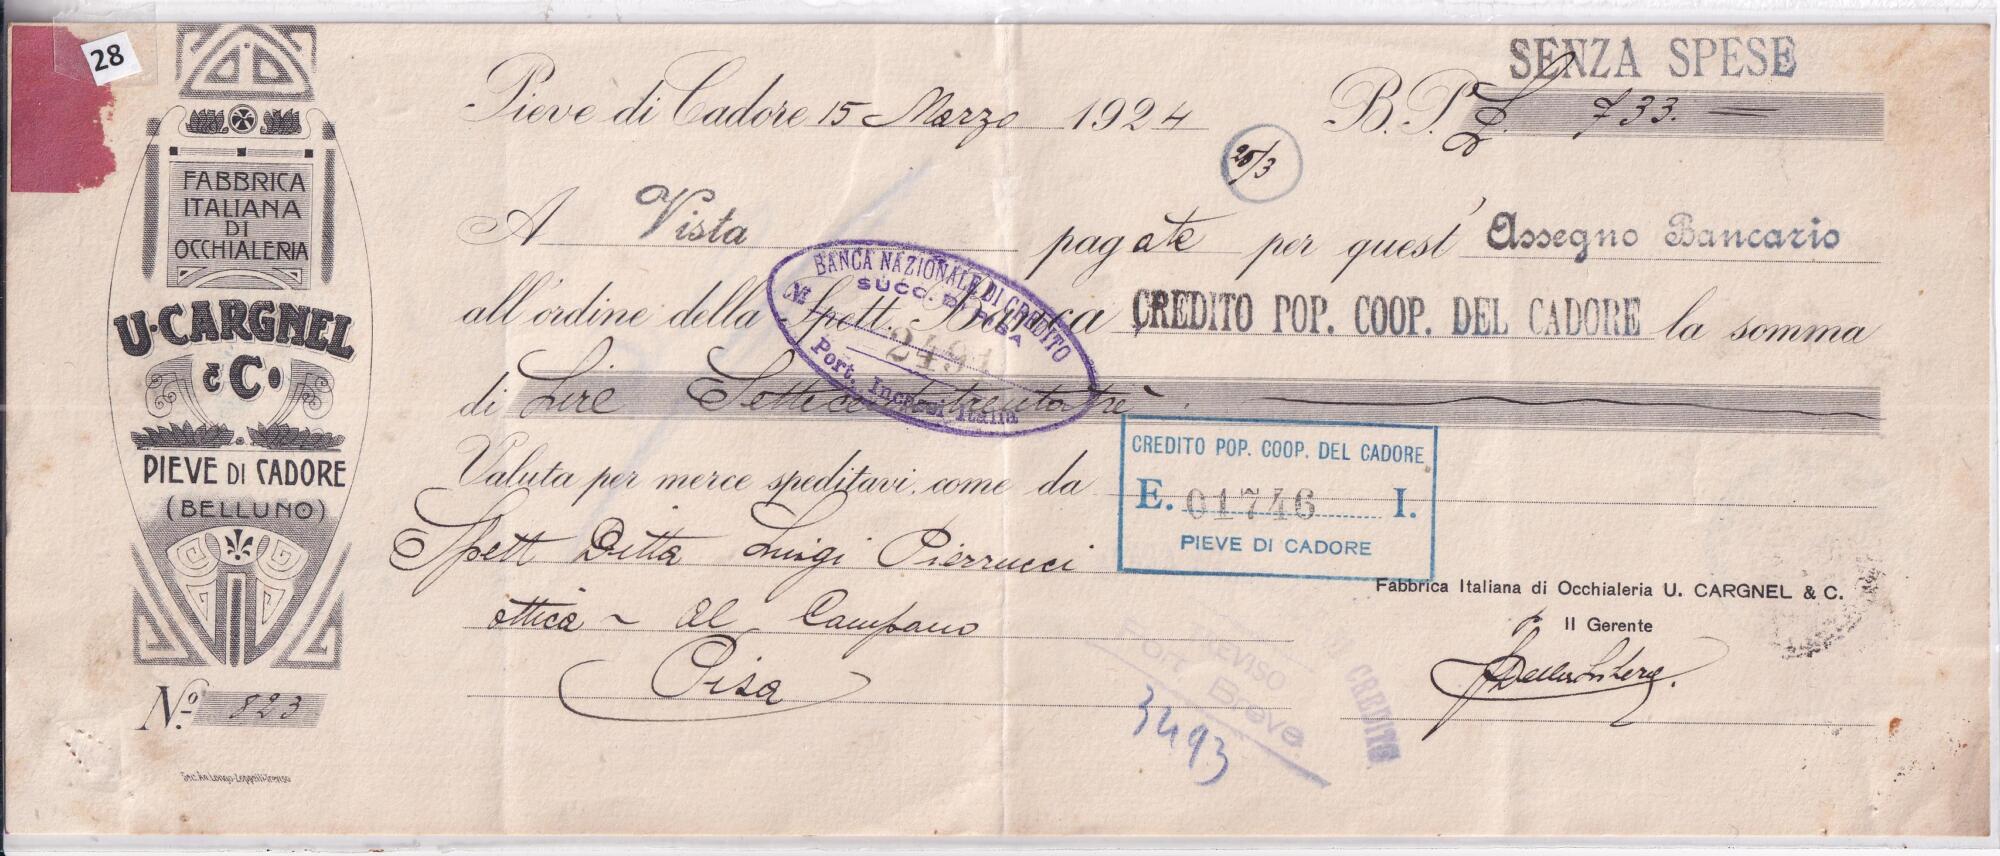 28
FABBRICA
ITALIANA
DI
OCCHIALERIA
U. CARGNEL
& C.
PIEVE DI CADORE
(BELLUNO)
N.º 823
SENZA SPESE
Pieve di Cadore 15 Marzo 1924 B. P. L. 733.
25/3
A Vista pagate per quest' Assegno Bancario
all'ordine della Spett. Banca CREDITO POP. COOP. DEL CADORE la somma
di Lire Settecentotrentatrè
BANCA NAZIONALE DI CREDITO
SUCC. DI PISA
N. 2491
Port. Incassi Italia
Valuta per merce speditavi come da
CREDITO POP. COOP. DEL CADORE
E. 01746 I.
PIEVE DI CADORE
Spett Ditta Luigi Pierrucci
ottica - Al Campano
Pisa
Fabbrica Italiana di Occhialeria U. CARGNEL & C.
Il Gerente
TREVISO
Port Breve
CREDITO
3493